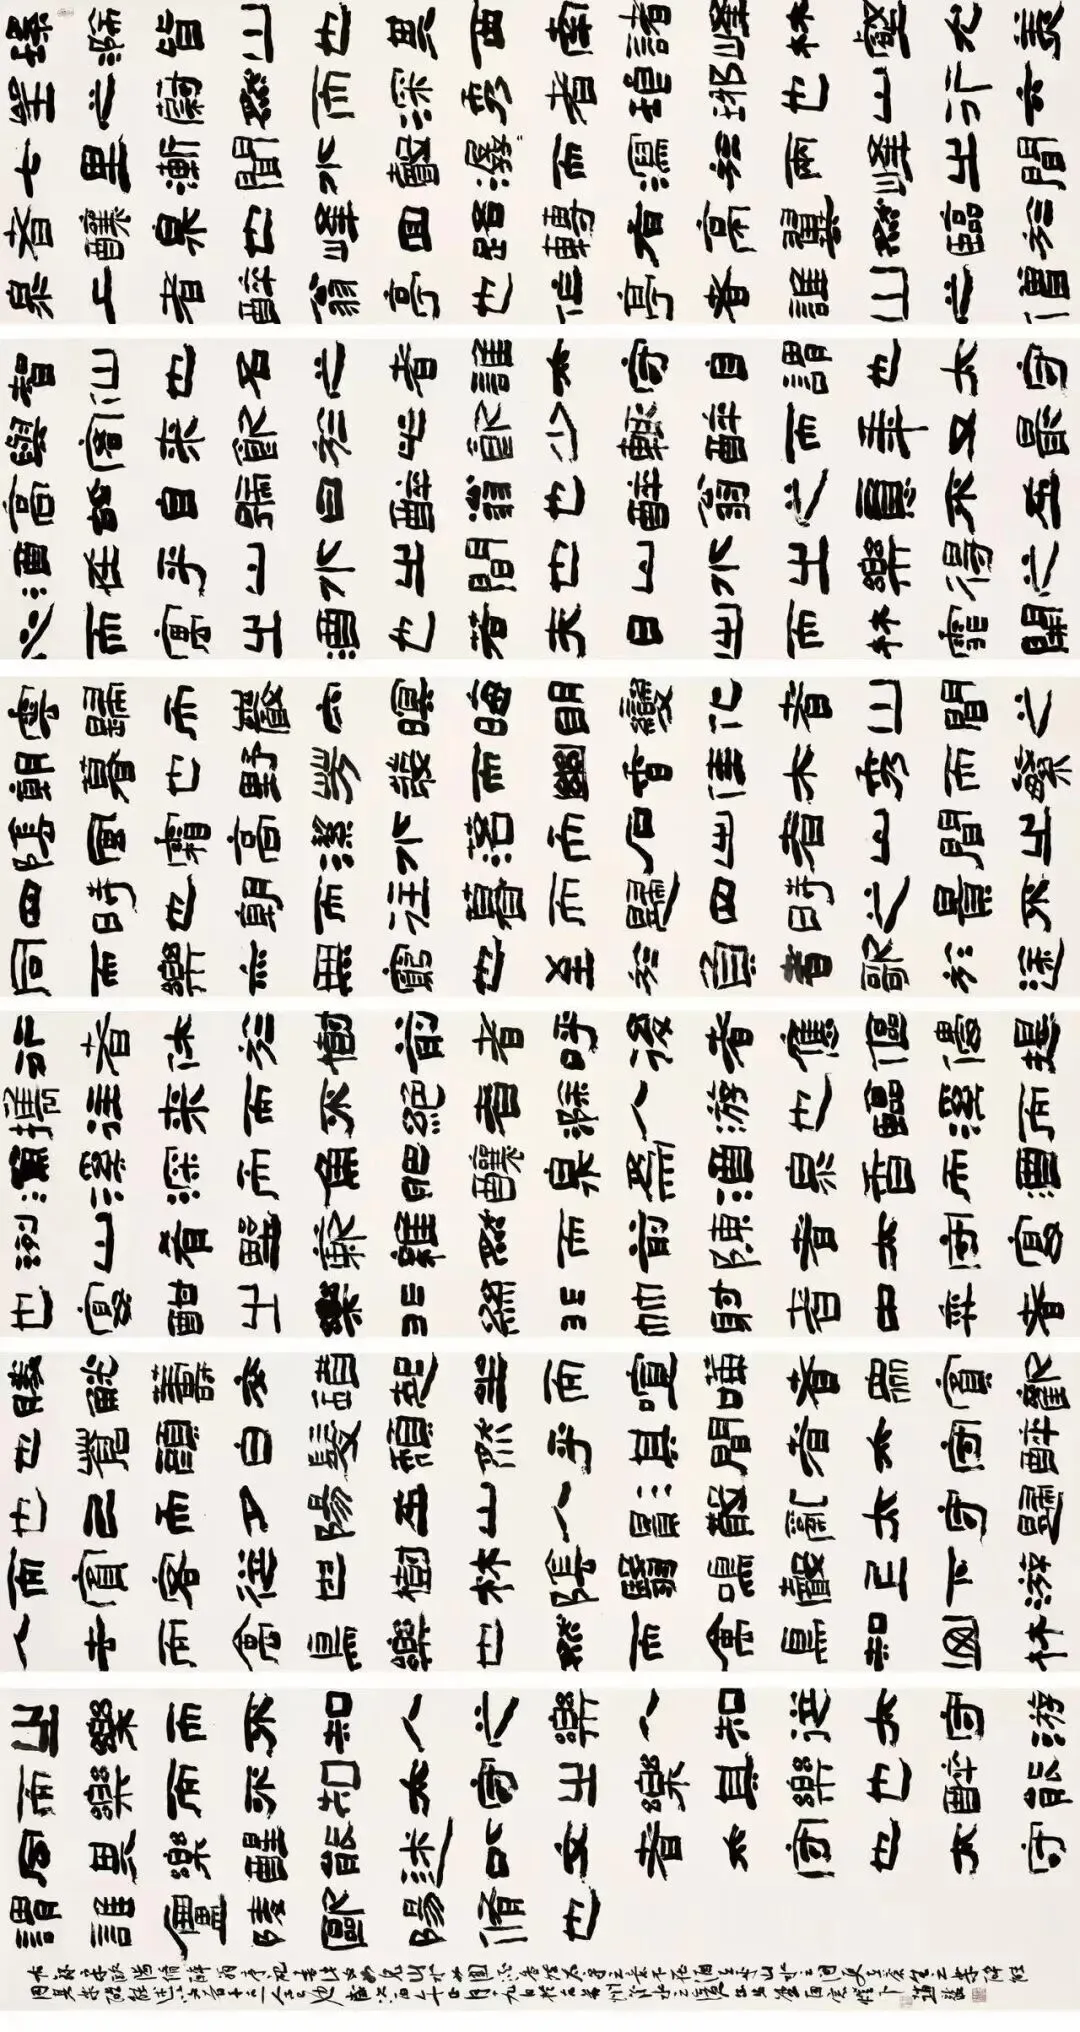 環滁皆山也其西南諸峰林壑尤美
望之蔚然而深秀者瑯琊也山行六
七里漸聞水聲潺潺而瀉於兩峰之間
者釀泉也峰回路轉有亭翼然臨於
泉上者醉翁亭也作亭者誰山之僧
智仙也名之者誰太守自謂也太守
與客來飲於此飲少輒醉而年又最
高故自號曰醉翁也醉翁之意不在
酒在乎山水之間也山水之樂得之
心而寓之酒也若夫日出而林霏開
雲歸而巖穴暝晦明變化者山間之
朝暮也野芳發而幽香佳木秀而繁
陰風霜高潔水落而石出者山間之
四時也朝而往暮而歸四時之景不
同而樂亦無窮也至於負者歌於途
行者休於樹前者呼後者應傴僂提
攜往來而不絕者滁人游也臨溪而
漁溪深而魚肥釀泉為酒泉香而酒
洌山肴野蔌雜然而前陳者太守宴
也宴酣之樂非絲非竹射者中弈者
勝觥籌交錯起坐而喧嘩者眾賓歡
也蒼顏白髮頹然乎其間者太守醉
也已而夕陽在山人影散亂太守歸
而賓客從也樹林陰翳鳴聲上下游
人去而禽鳥樂也然而禽鳥知山林
之樂而不知人之樂人知從太守游
而樂而不知太守之樂其樂也醉能
同其樂醒能述以文者太守也太守
謂誰廬陵歐陽修也